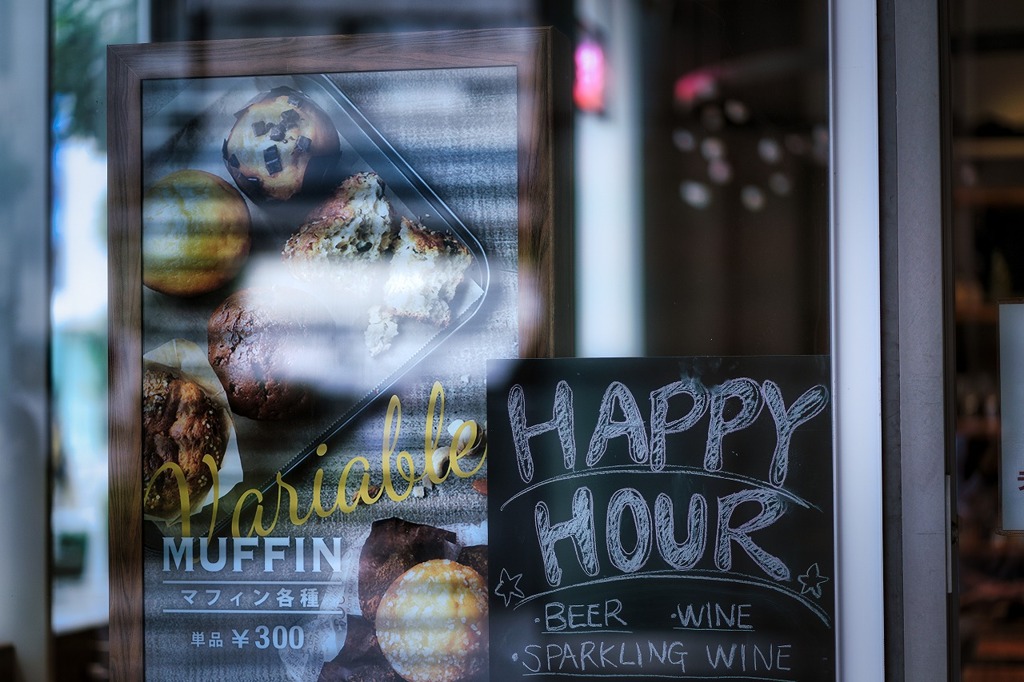 Variable
MUFFIN
マフィン各種
単品 ¥300
HAPPY
HOUR
·BEER ·WINE
·SPARKLING WINE